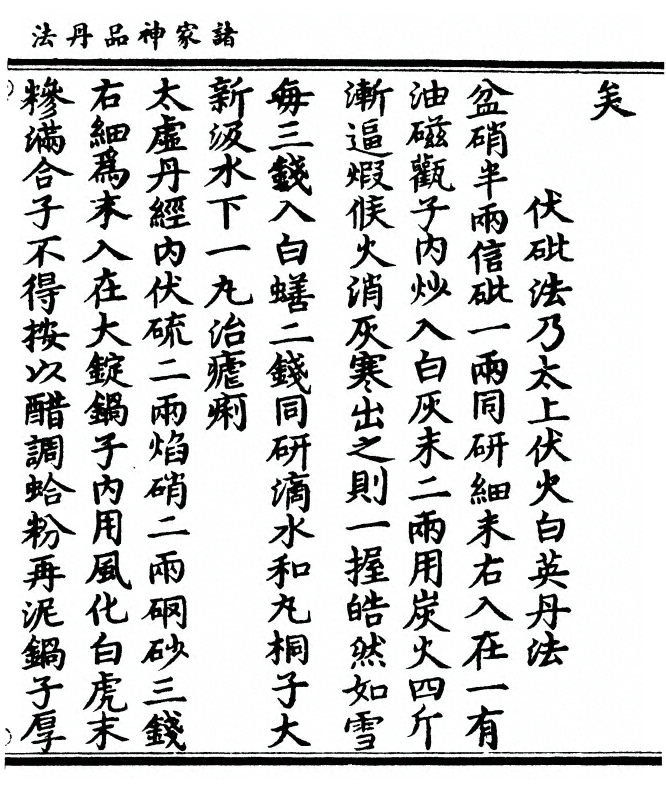 諸家神品丹法
矣
伏砒法乃太上伏火白英丹法
盆硝半兩信砒一兩同研細末右入在一有
油磁甕子內炒入白灰末二兩用炭火四斤
漸逼煆候火消灰寒出之則一握皓然如雪
每三錢入白蟮二錢同研滴水和丸桐子大
新汲水下一丸治瘧痢
太虛丹經內伏硫二兩焰硝二兩硇砂三錢
右細爲末入在大錠鍋子內用風化白虎末
糝滿合子不得按以醋調蛤粉再泥鍋子厚